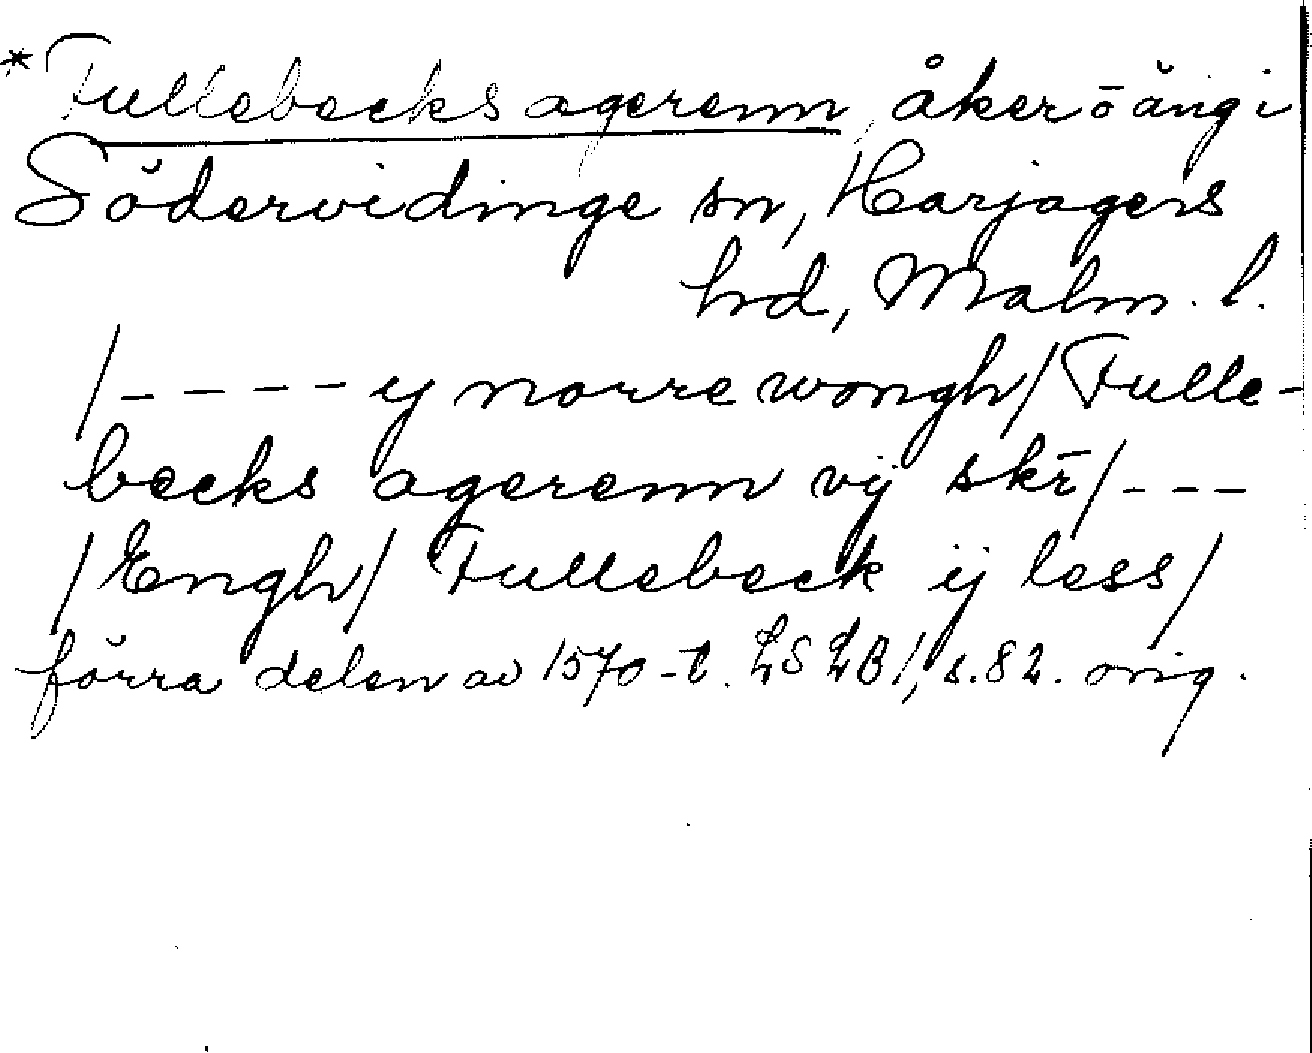 * Fullebecks agerenn, åker o äng i
Södervidinge sn, Harjagers
hd, Malm. l.
/ - - - - ij norre wongh / Fulle-
becks agerenn vij skr̄ / - - -
/ Engh / Fullebeck ij less /
förra delen av 1570-t. LSLB 1, s. 82. orig.